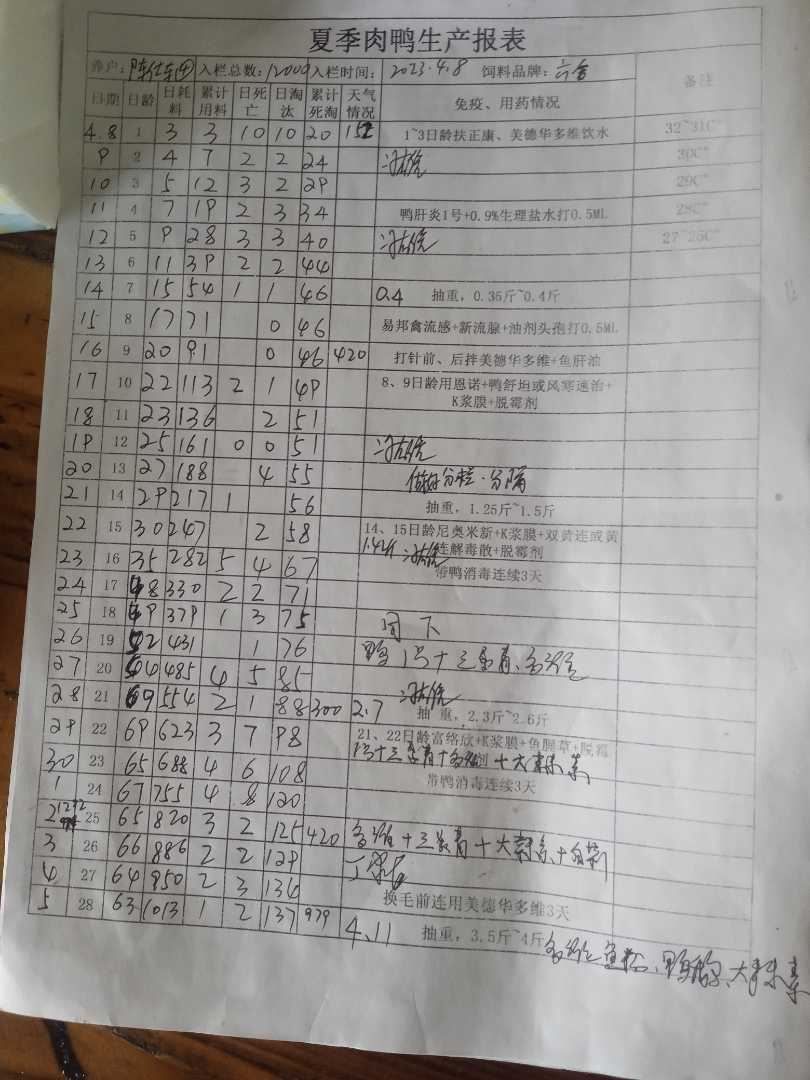 夏季肉鸭生产报表
养户: 入栏总数: 12000 入栏时间: 2023.4.8 饲料品牌: 六合 备注
日期 日龄 日耗料 累计用料 日死亡 日淘汰 累计死淘 天气情况 免疫、用药情况
4.8 1 3 3 10 10 20 1~3日龄扶正康、美德华多维饮水 32~31C°
9 2 4 7 2 2 24 30C°
10 3 5 12 3 2 29 29C°
11 4 7 19 2 3 34 鸭肝炎1号+0.9%生理盐水打0.5ML 28C°
12 5 9 28 3 3 40 27~26C°
13 6 11 39 2 2 44
14 7 15 54 1 1 46 0.4 抽重，0.35斤~0.4斤
15 8 17 71 0 46 易邦禽流感+新流腺+油剂头孢打0.5ML
16 9 20 91 0 46 420 打针前、后拌美德华多维+鱼肝油
17 10 22 113 2 1 49 8、9日龄用恩诺+鸭舒坦或风寒速治+K浆膜+脱霉剂
18 11 23 136 2 51
19 12 25 161 0 0 51
20 13 27 188 4 55 做好分栏.分隔
21 14 29 217 1 56 抽重，1.25斤~1.5斤
22 15 30 247 2 58 14、15日龄尼奥米新+K浆膜+双黄连或黄连解毒散+脱霉剂
23 16 35 282 5 4 67 1.42斤 带鸭消毒连续3天
24 17 48 330 2 2 71
25 18 49 379 1 3 75 同下
26 19 52 431 1 76
27 20 54 485 4 5 85
28 21 69 554 2 1 88 300 2.7 抽重，2.3斤~2.6斤
29 22 69 623 3 7 98 21、22日龄富络欣+K浆膜+鱼腥草+脱霉
30 23 65 688 4 6 108
1 24 67 755 4 8 120 带鸭消毒连续3天
2 25 65 820 3 2 125 420
3 26 66 886 2 2 129
4 27 64 950 2 3 134 换毛前连用美德华多维3天
5 28 63 1013 1 2 137 979 4.11 抽重，3.5斤~4斤